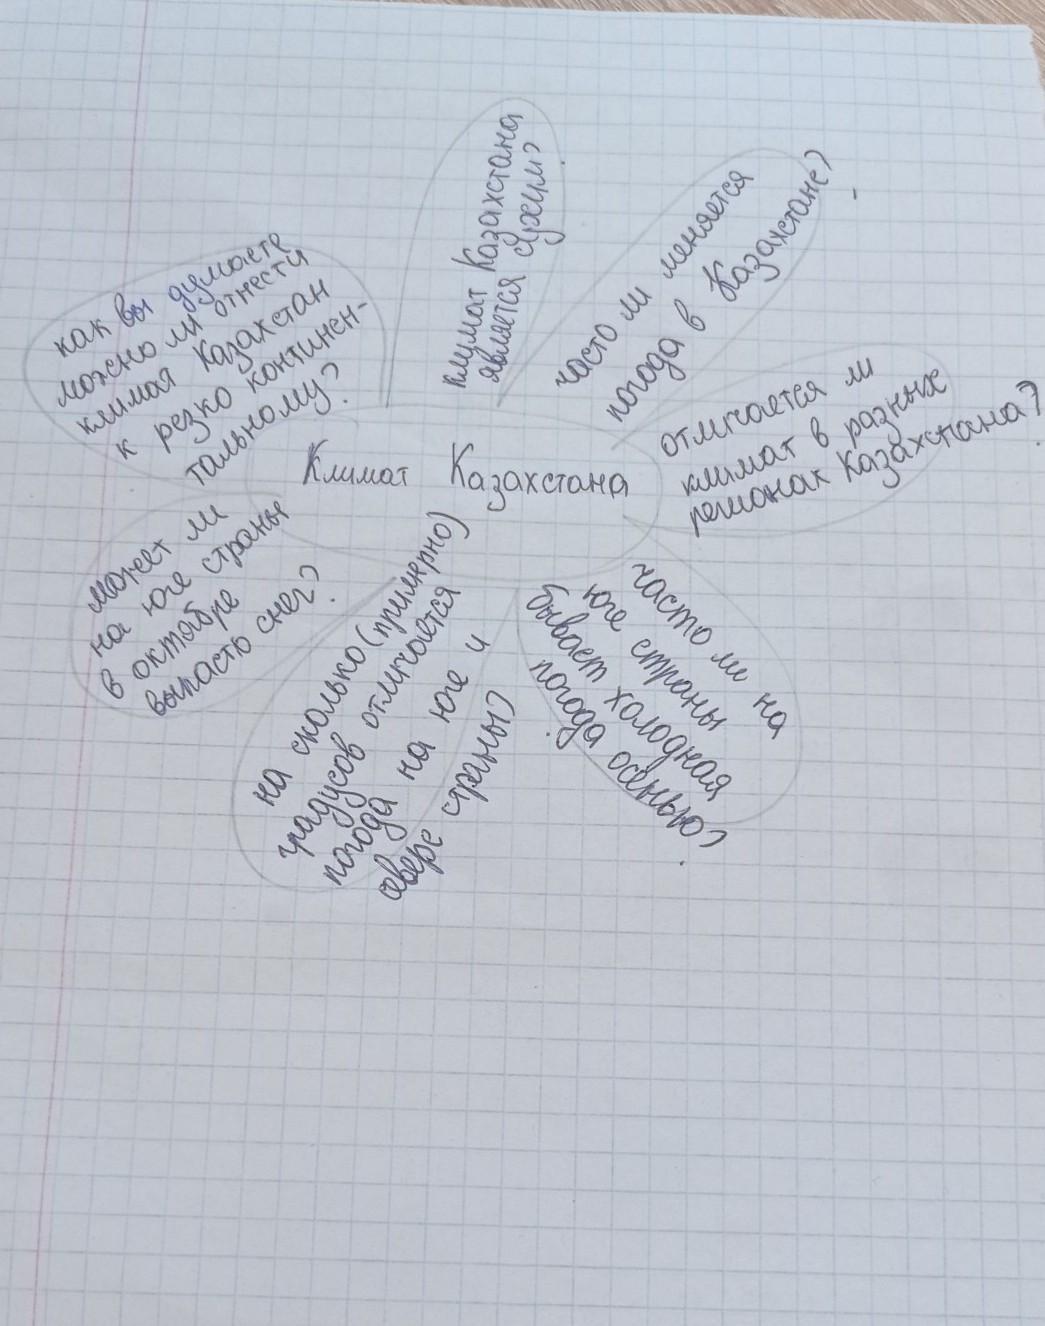 Климат Казахстана
как вы думаете
можно ли отнести
климат Казахстан
к резко континен-
тальному?
климат Казахстана
является сухим?
часто ли меняется
погода в Казахстане?
отличается ли
климат в разных
регионах Казахстана?
часто ли на
юге страны
бывает холодная
погода осенью?
на сколько (примерно)
градусов отличается
погода на юге и
севере страны?
может ли
на юге страны
в октябре
выпасть снег?